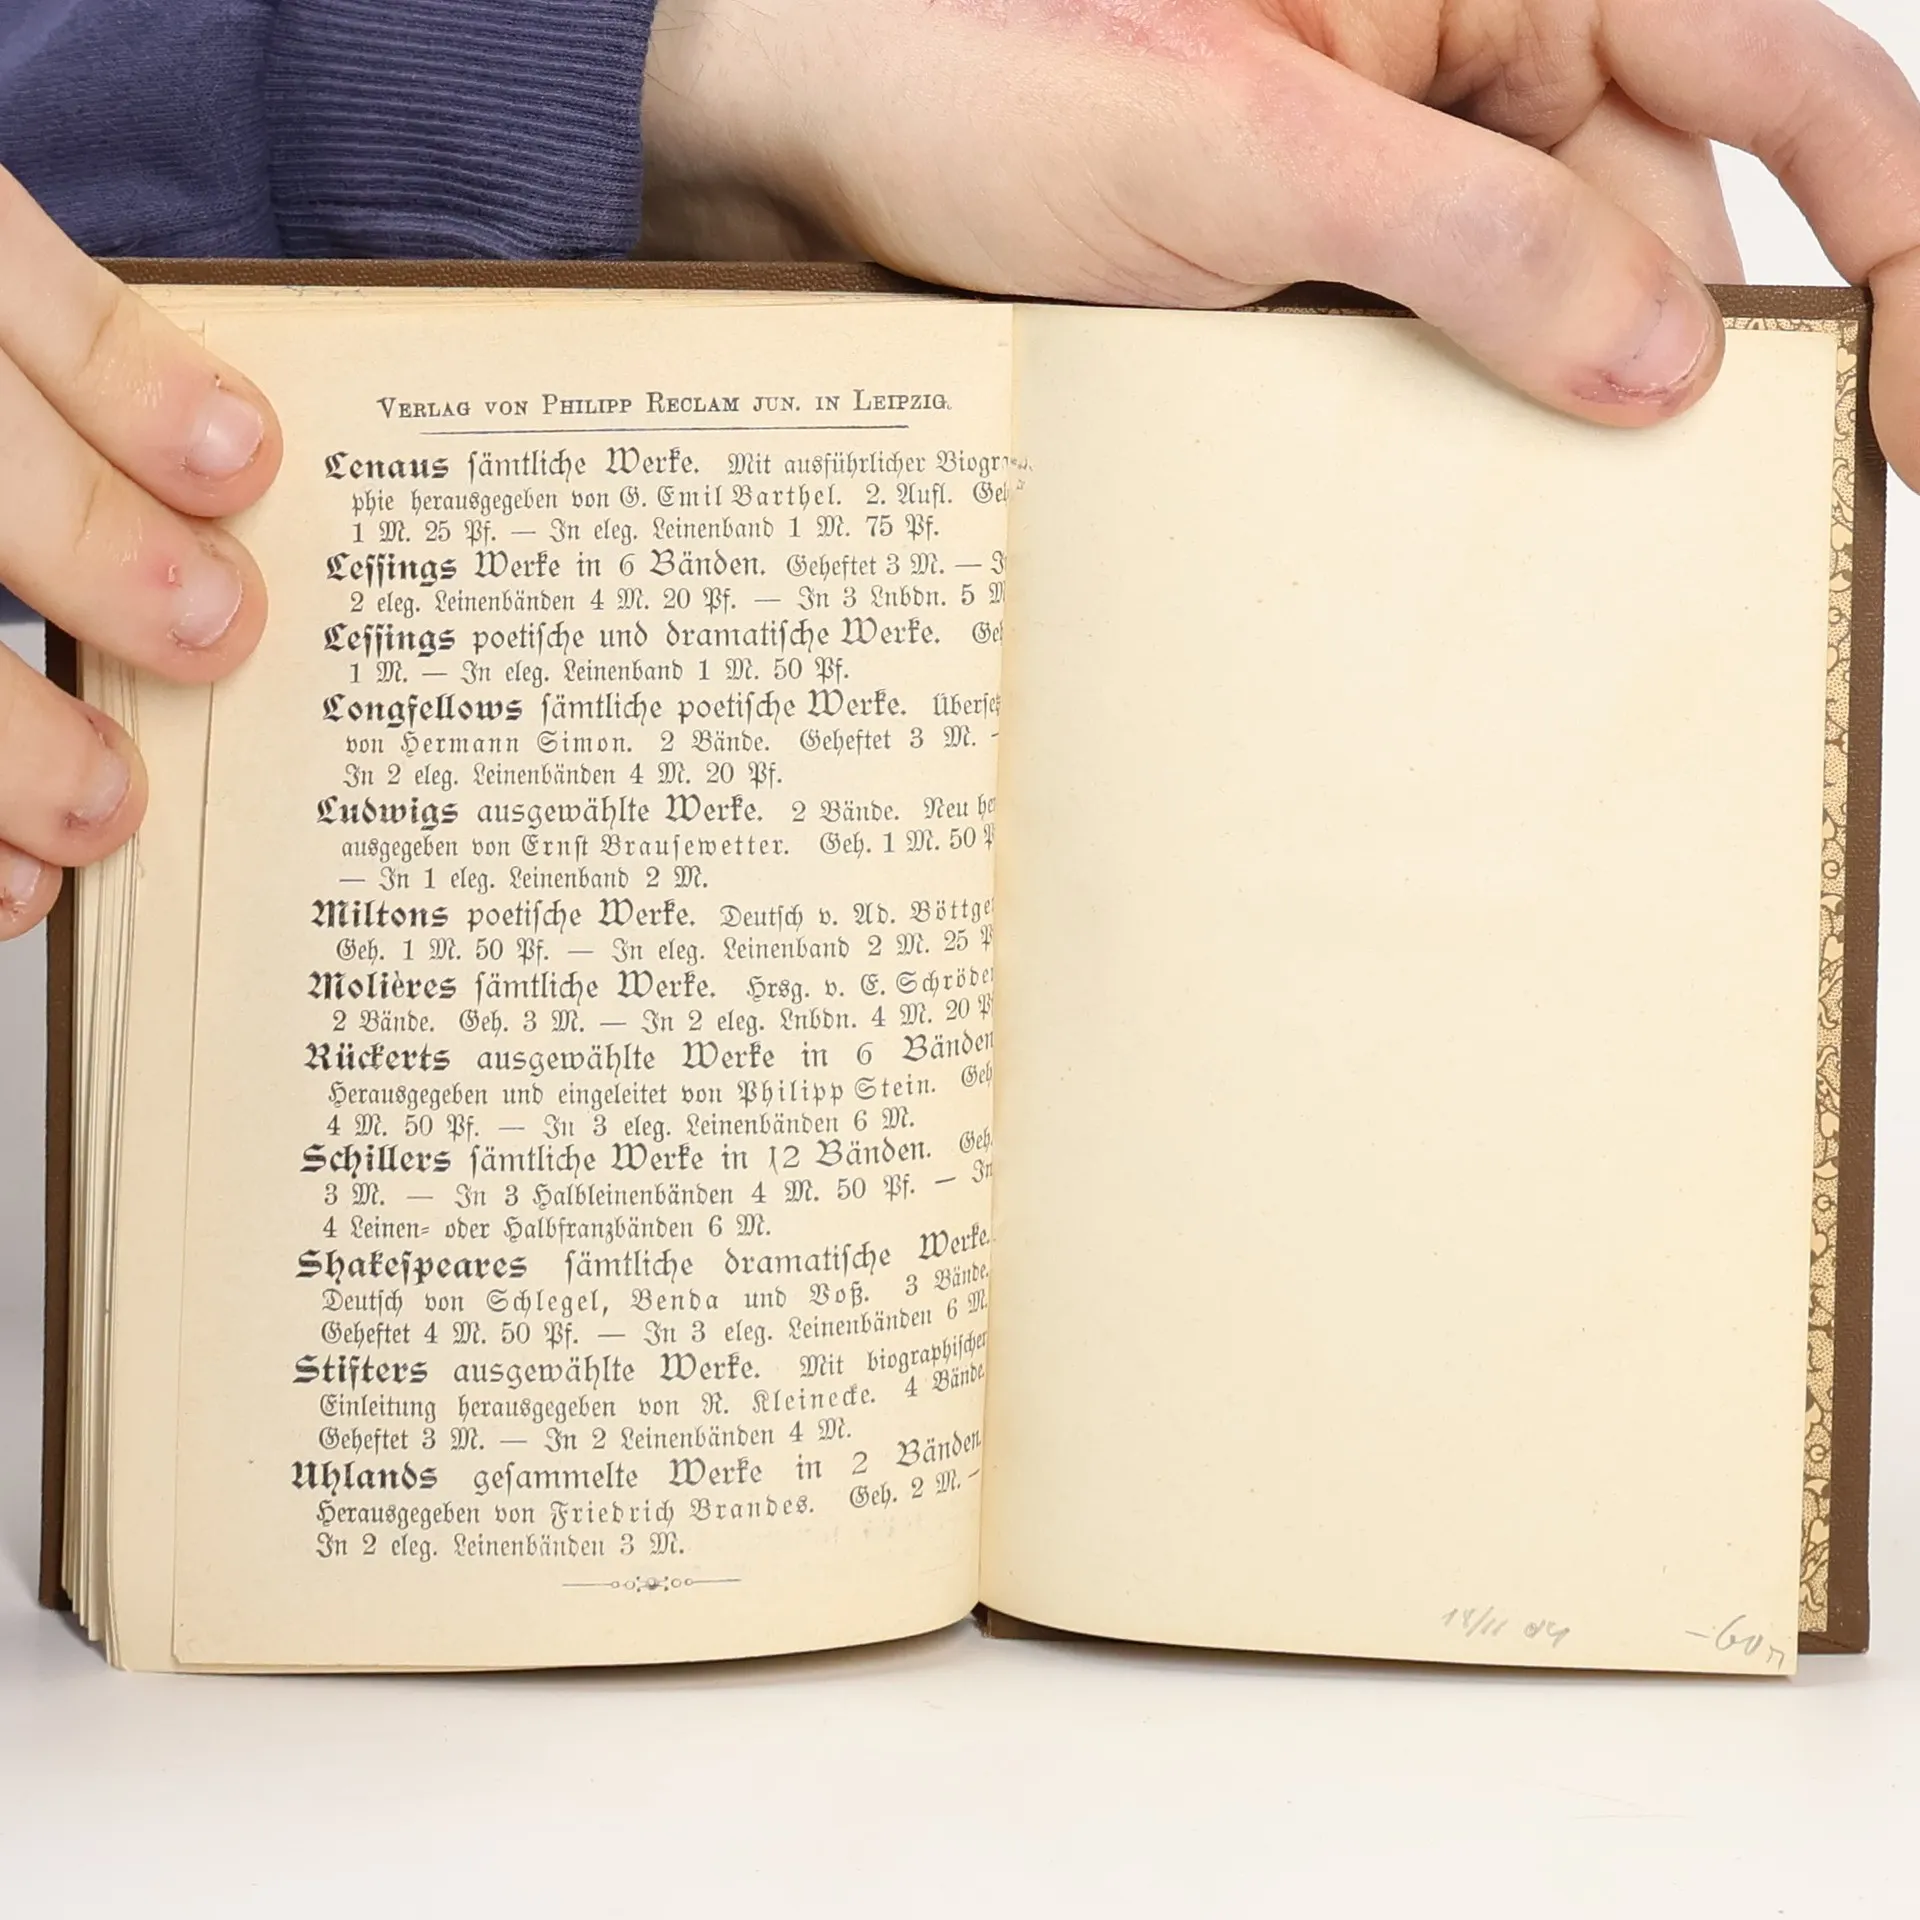 Verlag von Philipp Reclam jun. in Leipzig.
Lenaus sämtliche Werke. Mit ausführlicher Biogra-
phie herausgegeben von G. Emil Barthel. 2. Aufl. Geh.
1 M. 25 Pf. — In eleg. Leinenband 1 M. 75 Pf.
Leſſings Werke in 6 Bänden. Geheftet 3 M. — In
2 eleg. Leinenbänden 4 M. 20 Pf. — In 3 Lnbdn. 5 M
Leſſings poetiſche und dramatiſche Werke. Geh
1 M. — In eleg. Leinenband 1 M. 50 Pf.
Longfellows ſämtliche poetiſche Werke. Überſetz
von Hermann Simon. 2 Bände. Geheftet 3 M. —
In 2 eleg. Leinenbänden 4 M. 20 Pf.
Ludwigs ausgewählte Werke. 2 Bände. Neu her
ausgegeben von Ernſt Brauſewetter. Geh. 1 M. 50 P
— In 1 eleg. Leinenband 2 M.
Miltons poetiſche Werke. Deutſch v. Ad. Böttge
Geh. 1 M. 50 Pf. — In eleg. Leinenband 2 M. 25 P
Molières ſämtliche Werke. Hrsg. v. E. Schröder
2 Bände. Geh. 3 M. — In 2 eleg. Lnbdn. 4 M. 20 P
Rückerts ausgewählte Werke in 6 Bänden
Herausgegeben und eingeleitet von Philipp Stein. Geh
4 M. 50 Pf. — In 3 eleg. Leinenbänden 6 M.
Schillers ſämtliche Werke in 12 Bänden. Geh.
3 M. — In 3 Halbleinenbänden 4 M. 50 Pf. — In
4 Leinen- oder Halbfranzbänden 6 M.
Shakeſpeares ſämtliche dramatiſche Werke.
Deutſch von Schlegel, Benda und Voß. 3 Bände.
Geheftet 4 M. 50 Pf. — In 3 eleg. Leinenbänden 6 M.
Stifters ausgewählte Werke. Mit biographiſcher
Einleitung herausgegeben von R. Kleinecke. 4 Bände.
Geheftet 3 M. — In 2 Leinenbänden 4 M.
Uhlands geſammelte Werke in 2 Bänden.
Herausgegeben von Friedrich Brandes. Geh. 2 M. —
In 2 eleg. Leinenbänden 3 M.
-60